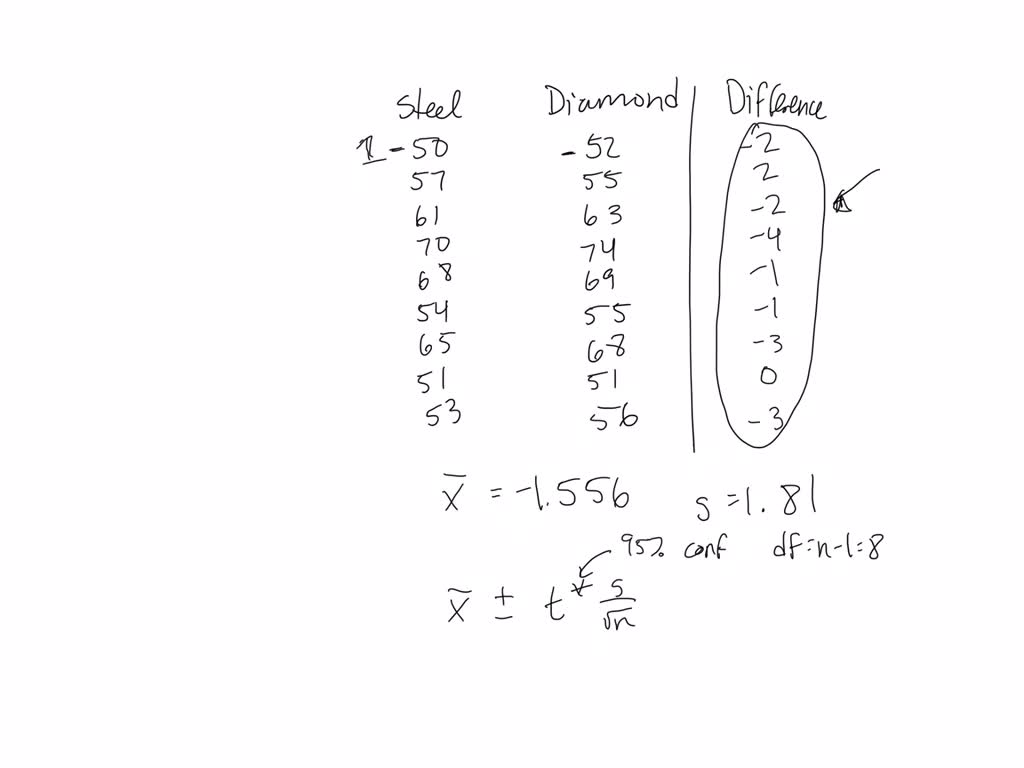 Steel Diamond Difference
1 - 50 - 52 -2
57 55 2
61 63 -2
70 74 -4
68 69 -1
54 55 -1
65 68 -3
51 51 0
53 56 -3
x̄ = -1.556 s = 1.81
95% conf df = n-1 = 8
x̄ ± t* s/√n